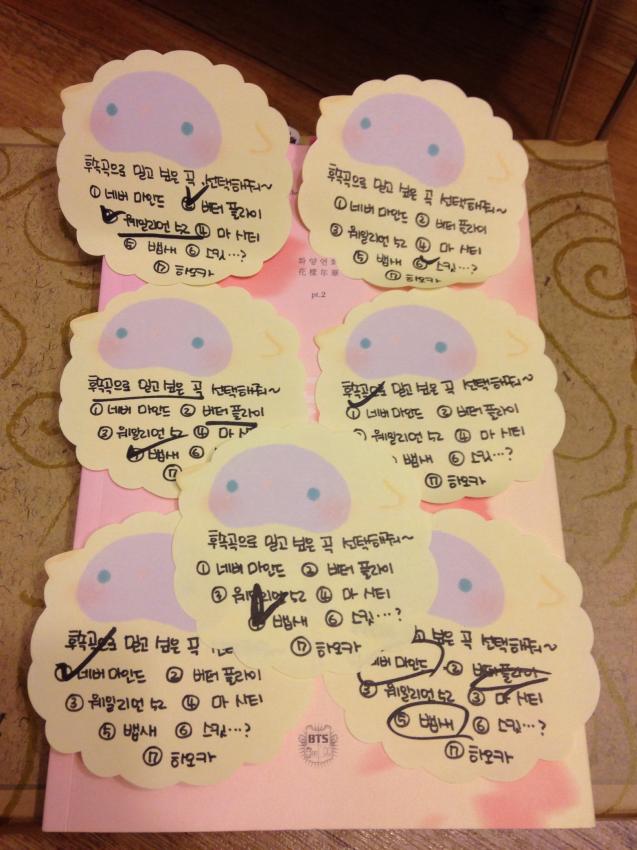 후속곡으로 밀고 싶은 곡 선택해줘~
① 네버 마인드 ② 버터 플라이
③ 뤠일리언 52 ④ 마 시티
⑤ 뱁새 ⑥ 스킷…?
⑦ 하오카
후속곡으로 밀고 싶은 곡 선택해줘~
① 네버 마인드 ② 버터 플라이
③ 뤠일리언 52 ④ 마 시티
⑤ 뱁새 ⑥ 스킷…?
⑦ 하오카
화양연화
花樣年華
pt.2
후속곡으로 밀고 싶은 곡 선택해줘~
① 네버 마인드 ② 버터 플라이
③ 뤠일리언 52 ④ 마 시
⑤ 뱁새
⑦
후속곡으로 밀고 싶은 곡 선택해줘~
① 네버 마인드 ② 버터 플라이
뤠일리언 52 ④ 마 시티
뱁새 ⑥ 스킷…?
⑦ 하오카
후속곡으로 밀고 싶은 곡 선택해줘~
① 네버 마인드 ② 버터 플라이
③ 뤠일리언 52 ④ 마 시티
⑤ 뱁새 ⑥ 스킷…?
⑦ 하오카
후속곡으로 밀고 싶은 곡
① 네버 마인드 ② 버터 플라이
③ 뤠일리언 52 ④ 마 시티
⑤ 뱁새 ⑥ 스킷…?
⑦ 하오카
싶은 곡 선택해줘~
네버 마인드 ② 버터 플라이
③ 뤠일리언 52 ③ 마 시티
⑤ 뱁새 ⑥ 스킷…?
⑦ 하오카
BTS